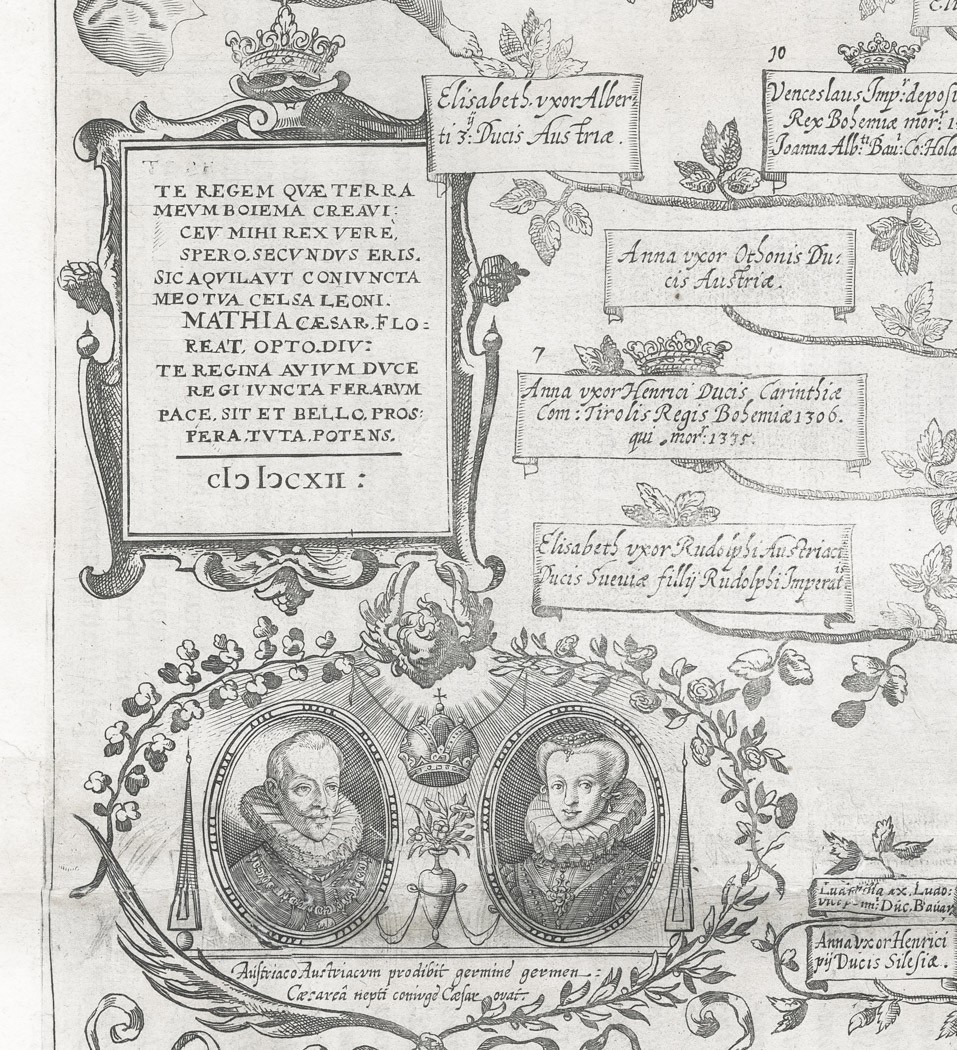 TE REGEM QVÆ TERRA
MEVM BOIEMA CREAVI:
CEV MIHI REX VERE,
SPERO.SECVNDVS ERIS.
SIC AQVILAVT CONIVNCTA
MEO TVA CELSA LEONI.
MATHIA CÆSAR.FLO:
REAT, OPTO.DIV:
TE REGINA AVIVM DVCE
REGI IVNCTA FERARVM
PACE. SIT ET BELLO. PROS:
PERA.TVTA.POTENS.
cIↄ Iↄcxıı :
Elisabeth. vxor Alber:
ti 3: ij Ducis Austriæ.
10
Venceslaus Imp:r depos
Rex Bohemiæ mor:r 1
Joanna Alb:ti Bau: Co: Hola
Anna vxor Othonis Du:
cis Austriæ.
7
Anna vxor Henrici Ducis Carinthiæ
Com: Tirolis Regis Bohemiæ 1306.
qui mor:r 1335.
Elisabeth vxor Rudolphi Austriaci
Ducis Sueuiæ filij Rudolphi Imperat:is
Ludo:
Duc. Bauar
Anna vxor Henrici
pij Ducis Silesiæ.
Austriaco Austriacvm prodibit germine germen :
Cæsareâ nepti coniuge Cæsar ovat: